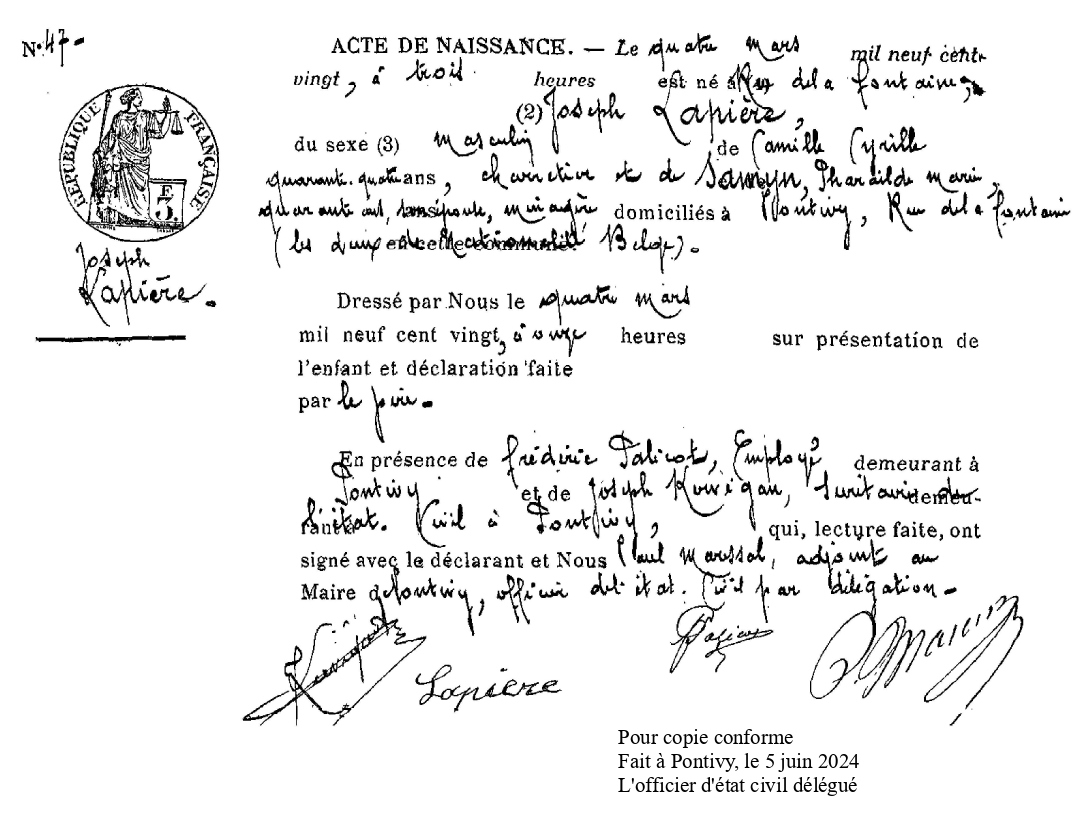 N° 47-
ACTE DE NAISSANCE. — Le quatre mars mil neuf cent
vingt, à trois heures est né à Rue de la fontaine,
(2) Joseph Lapière,
du sexe (3) masculin de Camille Cyrille
quarante quatre ans, charretier et de Samyn, Pharaïlde marie,
quarante ans, son épouse, ménagère domiciliés à Pontivy, Rue de la fontaine
(les deux de Nationalité Belge).
en cette commune.
RÉPUBLIQUE FRANÇAISE
F
3
Joseph
Lapière.
Dressé par Nous le quatre mars
mil neuf cent vingt, à onze heures sur présentation de
l'enfant et déclaration faite
par le père.
En présence de frédéric Palicot, Employé demeurant à
Pontivy et de Joseph Kervégan, Secrétaire de demeu-
l'état. Civil à Pontivy, rant à qui, lecture faite, ont
signé avec le déclarant et Nous Paul adjoint au
Maire de Pontivy, officier de l'état. Civil par délégation-
Lapière
Pour copie conforme
Fait à Pontivy, le 5 juin 2024
L'officier d'état civil délégué